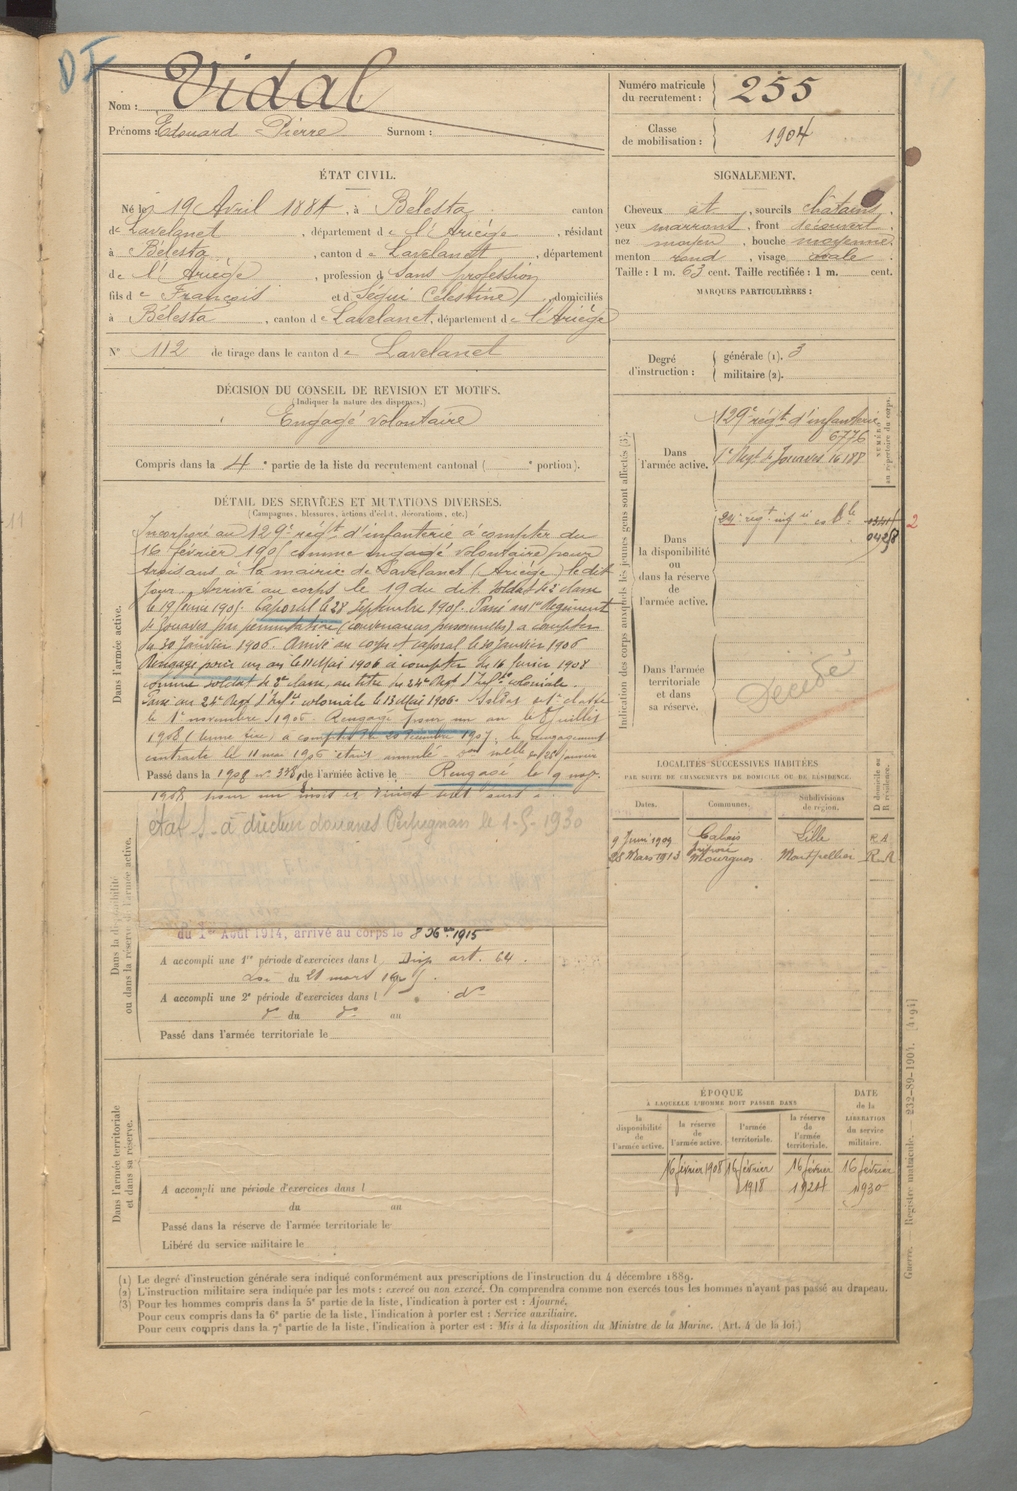 DI
Nom : Vidal
Prénoms : Edouard Pierre Surnom :
Numéro matricule du recrutement : 255
Classe de mobilisation : 1904
ÉTAT CIVIL.
Né le 19 Avril 1884, à Bélesta canton
de Lavelanet, département de l'Ariège, résidant
à Bélesta, canton de Lavelanet, département
de l'Ariège, profession d sans profession
fils de François et d Ségui Celestine, domiciliés
à Bélesta, canton de Lavelanet, département de l'Ariège
N° 112 de tirage dans le canton de Lavelanet
SIGNALEMENT.
Cheveux et, sourcils châtains,
yeux marrons, front découvert,
nez moyen, bouche moyenne
menton rond, visage ovale.
Taille : 1 m. 63 cent. Taille rectifiée : 1 m. cent.
MARQUES PARTICULIÈRES :
Degré d'instruction : générale (1). 3
militaire (2).
DÉCISION DU CONSEIL DE REVISION ET MOTIFS.
(Indiquer la nature des dispenses.)
Engagé volontaire
Compris dans la 4e partie de la liste du recrutement cantonal ( e portion).
DÉTAIL DES SERVICES ET MUTATIONS DIVERSES.
(Campagnes, blessures, actions d'éclat, décorations, etc.)
Dans l'armée active.
Incorporé au 129e régt d'infanterie à compter du
16 février 1905 comme engagé volontaire pour
trois ans à la mairie de Lavelanet (Ariège) le dit
jour. Arrivé au corps le 19 du dit. Soldat de 2e classe
le 19 février 1905. Caporal le 28 Septembre 1905. Passé au 1er Régiment
de Zouaves par permutation (convenances personnelles) à compter
du 30 Janvier 1906. Arrivé au corps et caporal le 30 Janvier 1906
Rengagé pour un an le 11 Mai 1906 à compter du 16 février 1908
comme soldat de 2e classe, au titre du 24e Régt d'Infie coloniale.
Passé au 24e Régt d'Infie coloniale le 13 Mai 1906. Soldat de 1e classe
le 1er novembre 1906. Rengagé pour un an le 8 Juillet
à compter du 20 décembre 1907, le rengagement
contracté le 11 mai 1906 étant annulé
Passé dans la de l'armée active le Rengagé le 9 nov.
1908 pour un mois et vingt sept jours
Dans la disponibilité ou dans la réserve de l'armée active.
directeur douanes Perpignan le 1-5-1930
du 1er Août 1914, arrivé au corps le 8 Xbre 1915
A accompli une 1re période d'exercices dans l Disp. art. 64.
Loi du 21 mars 1905.
A accompli une 2e période d'exercices dans l do
do du do au
Passé dans l'armée territoriale le
Dans l'armée territoriale et dans sa réserve.
A accompli une période d'exercices dans l
du au
Passé dans la réserve de l'armée territoriale le
Libéré du service militaire le
Indication des corps auxquels les jeunes gens sont affectés (3).
NUMÉRO au répertoire du corps.
Dans l'armée active.
129e régt d'infanterie
6776
1er Régt de Zouaves 16188
Dans la disponibilité ou dans la réserve de l'armée active.
24e régt infie col
2
Dans l'armée territoriale et dans sa réserve.
Décédé
LOCALITÉS SUCCESSIVES HABITÉES
PAR SUITE DE CHANGEMENTS DE DOMICILE OU DE RÉSIDENCE.
Dates. Communes. Subdivisions de région. D domicile ou R résidence.
9 Juin 1909 Calais Lille R.A
28 Mars 1913 Mourgues Montpellier R.A
ÉPOQUE
À LAQUELLE L'HOMME DOIT PASSER DANS
la disponibilité de l'armée active.
la réserve de l'armée active.
l'armée territoriale.
la réserve de l'armée territoriale.
DATE de la LIBÉRATION du service militaire.
16 février 1908 16 février 1918 16 février 1924 16 février 1930
(1) Le degré d'instruction générale sera indiqué conformément aux prescriptions de l'instruction du 4 décembre 1889.
(2) L'instruction militaire sera indiquée par les mots : exercé ou non exercé. On comprendra comme non exercés tous les hommes n'ayant pas passé au drapeau.
(3) Pour les hommes compris dans la 5e partie de la liste, l'indication à porter est : Ajourné.
Pour ceux compris dans la 6e partie de la liste, l'indication à porter est : Service auxiliaire.
Pour ceux compris dans la 7e partie de la liste, l'indication à porter est : Mis à la disposition du Ministre de la Marine. (Art. 4 de la loi.)
Guerre. — Registre matricule. — 232-89-1904. [4194]